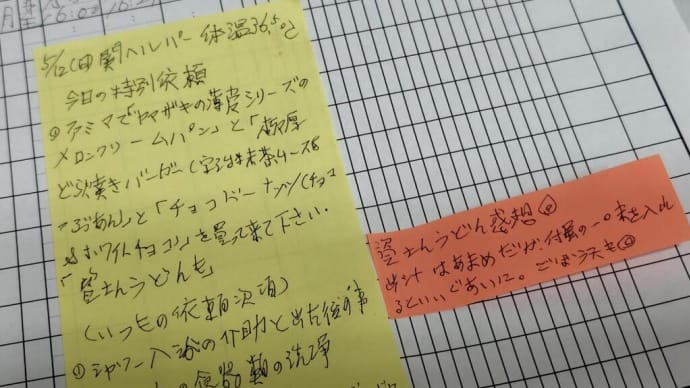 5/12(日)関ヘルパー 体温36.5℃
今日の特別依頼
ファミマで「ヤマザキの薄皮シリーズの
メロンクリームパン」と「極厚
どら焼きバーガー(宇治抹茶ホイップ&
つぶあん」と「チョコドーナツ(チョコ
&ホワイトチョコ)」を買って来て下さい.
「資さんうどんも」
(いつもの依頼次項)
①シャワー入浴の介助と出た後の
食器類の洗浄
資さんうどん感想
出汁はあまめだが、付属の一味を入れ
るといいぐあいに。ごぼう天も